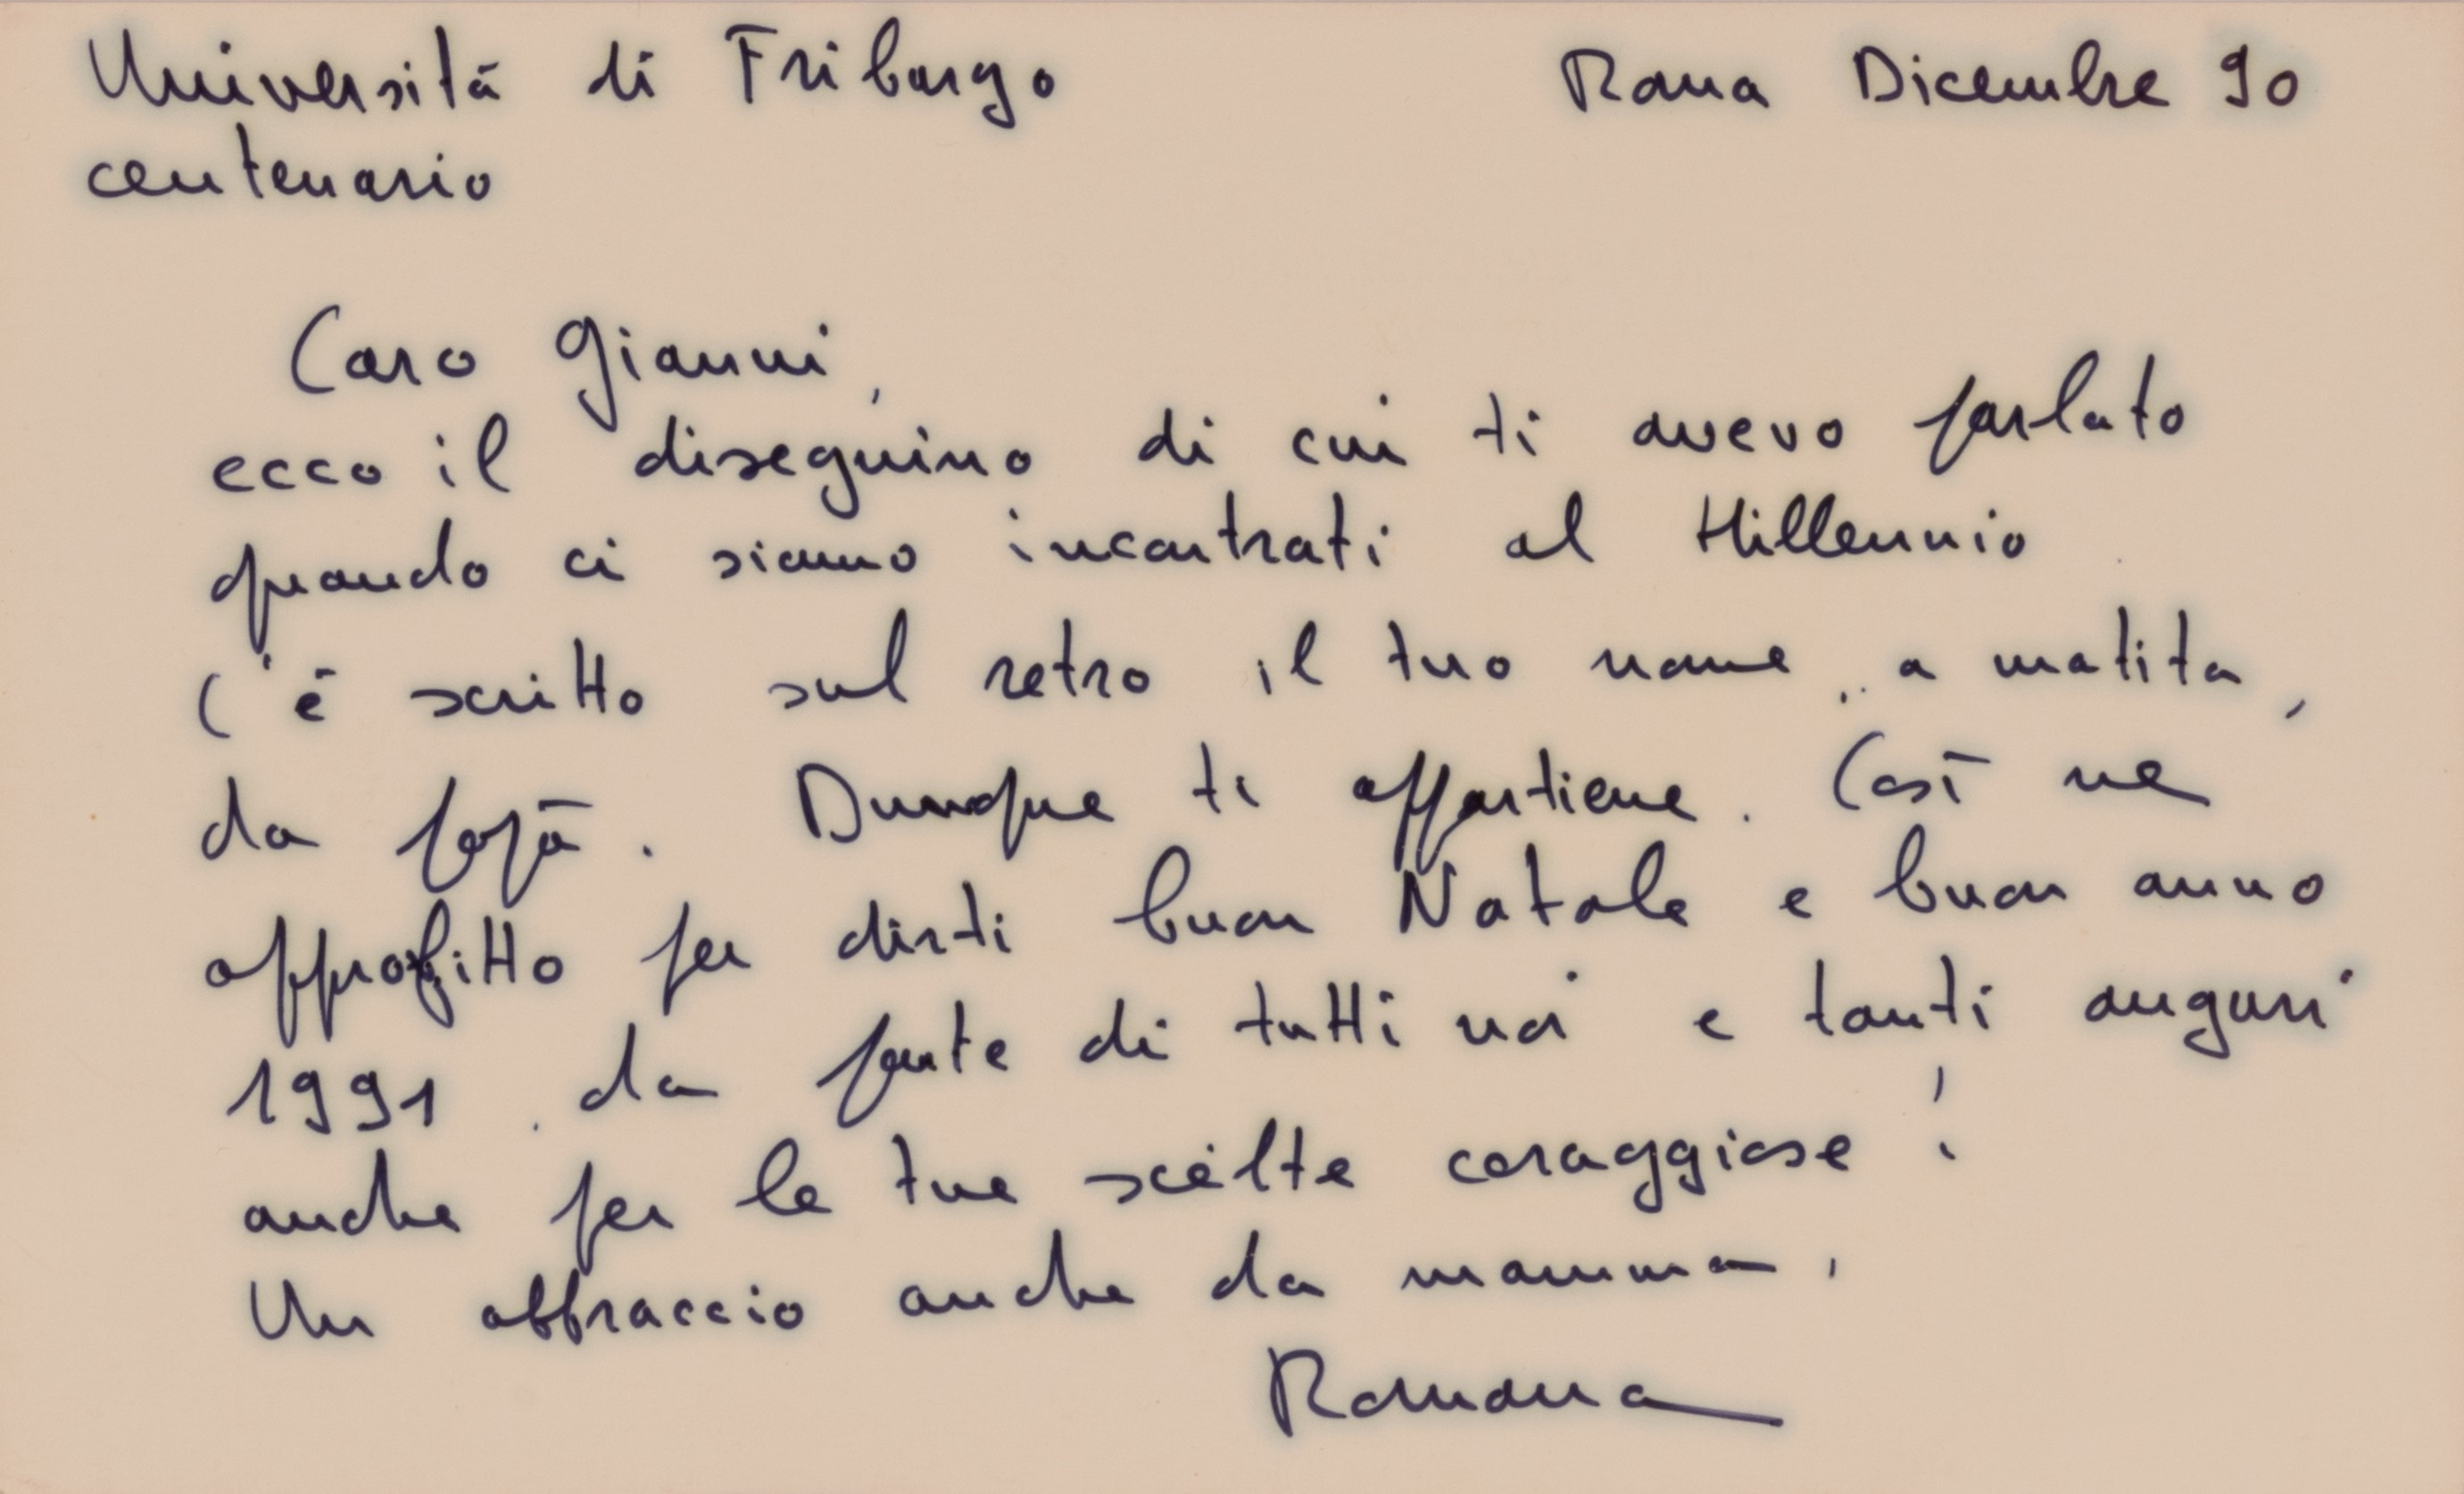 Università di Friburgo
centenario
Roma Dicembre 90
Caro Gianni,
ecco il diseguino di cui ti avevo parlato
quando ci siamo incontrati al Millennio
C'è scritto sul retro il tuo nome, a matita,
da papà. Dunque ti appartiene. Così ne
approfitto per dirti buon Natale e buon anno
1991. da parte di tutti noi e tanti auguri
anche per le tue scelte coraggiose!
Un abbraccio anche da mamma,
Romana